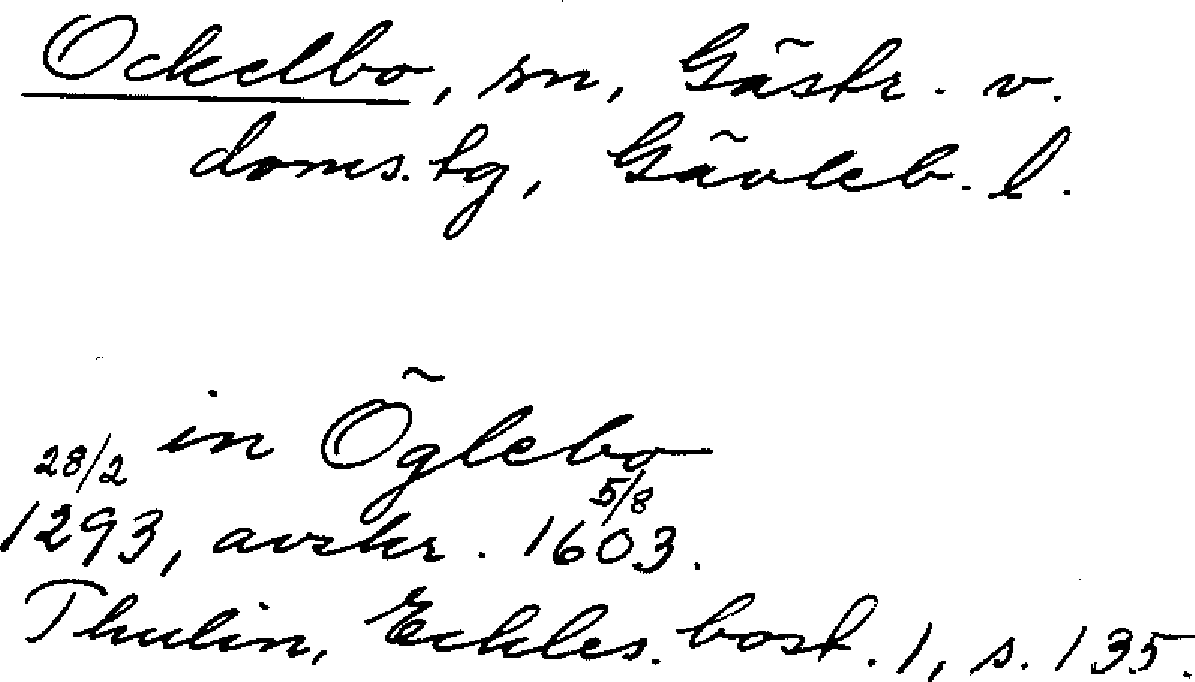 Ockelbo, sn, Gästr. v.
doms.tg, Gävleb. l.
in Öglebo
28/2 1293, avskr. 5/8 1603.
Thulin, Eckles. bost. 1, s. 135.